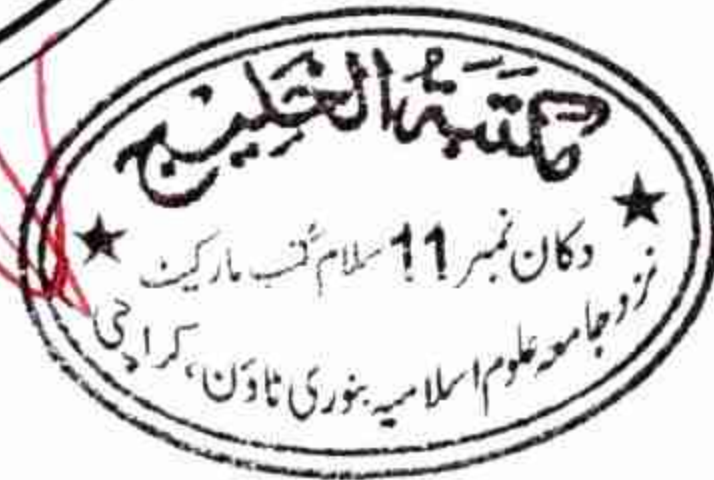 مكتبة الخليج
دکان نمبر 11 سلام کتب مارکیٹ
نزد جامعہ علوم اسلامیہ بنوری ٹاؤن، کراچی